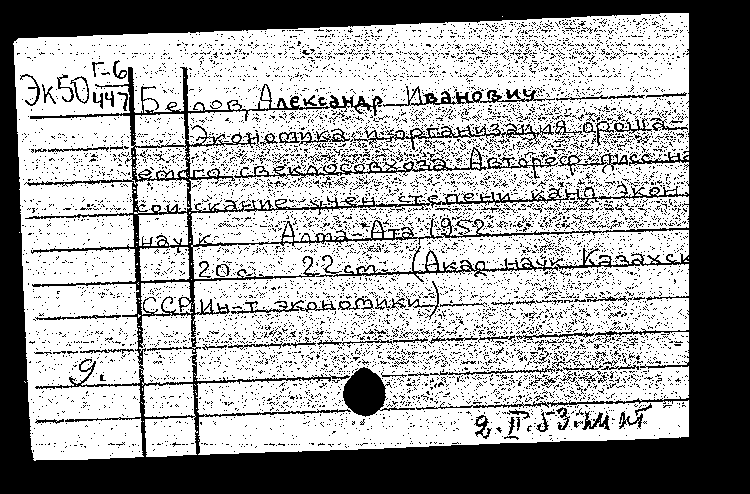 Эк50 Г-6
447
Белов, Александр Иванович
Экономика и организация ороша-
емого свеклосовхоза. Автореф. дисс. на
соискание учен. степени канд. экон.
наук. Алма-Ата 1952
20 с. 22 ст. (Акад. наук Казахск
ССР Ин-т экономики)
9.
2.II.53.